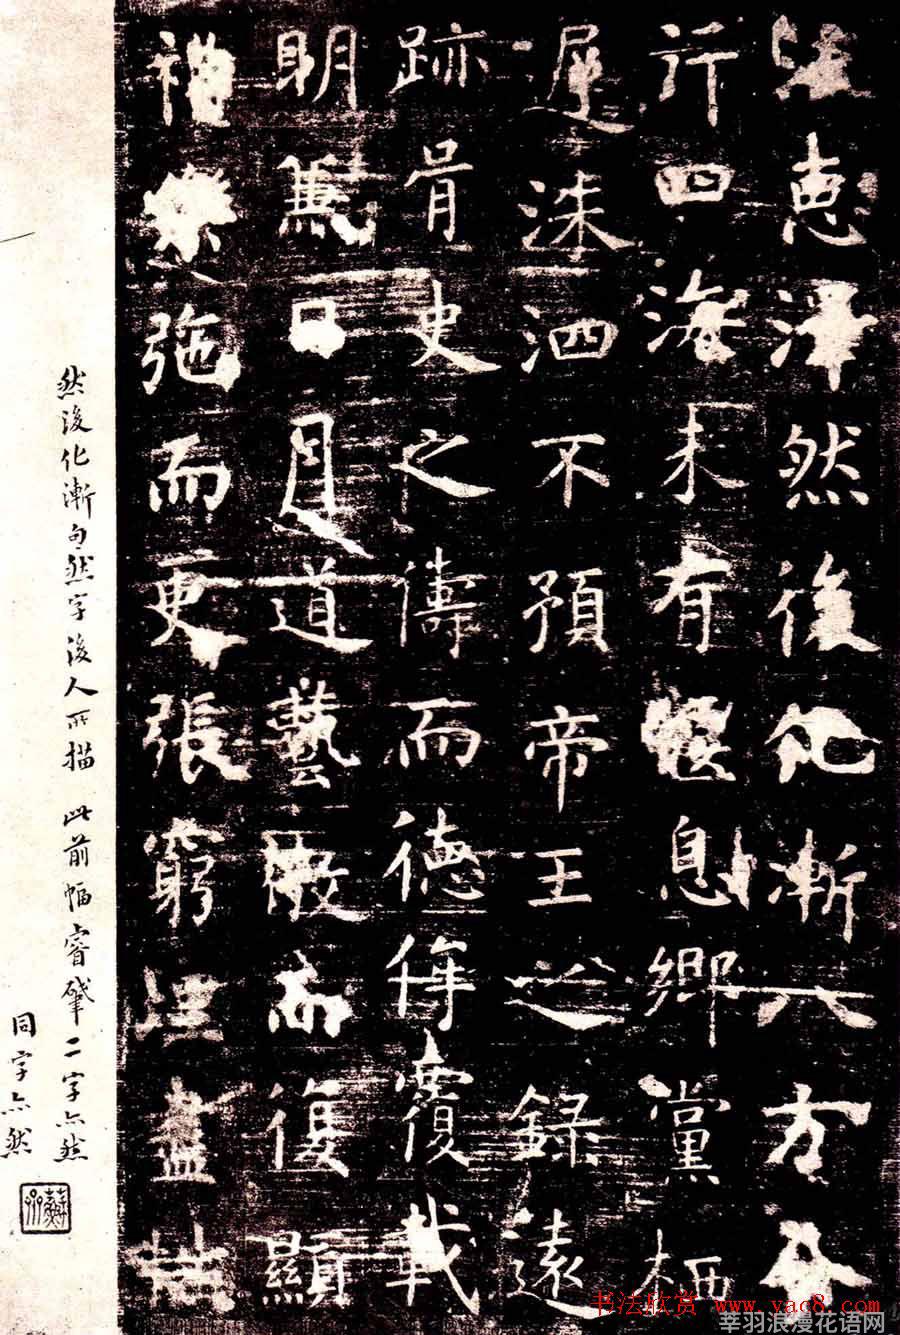 法惠澤然後化漸八方令
行四海未有偃息鄉黨栖
遲洙泗不預帝王之錄遠
跡胥史之儔而德侔覆載
明兼日月道藝微而復顯
禮樂弛而更張窮理盡性
然後化漸句然字後人所描 此前幅睿肇二字亦然
同字亦然
书法欣赏 www.yac8.com
幸羽浪漫花语网